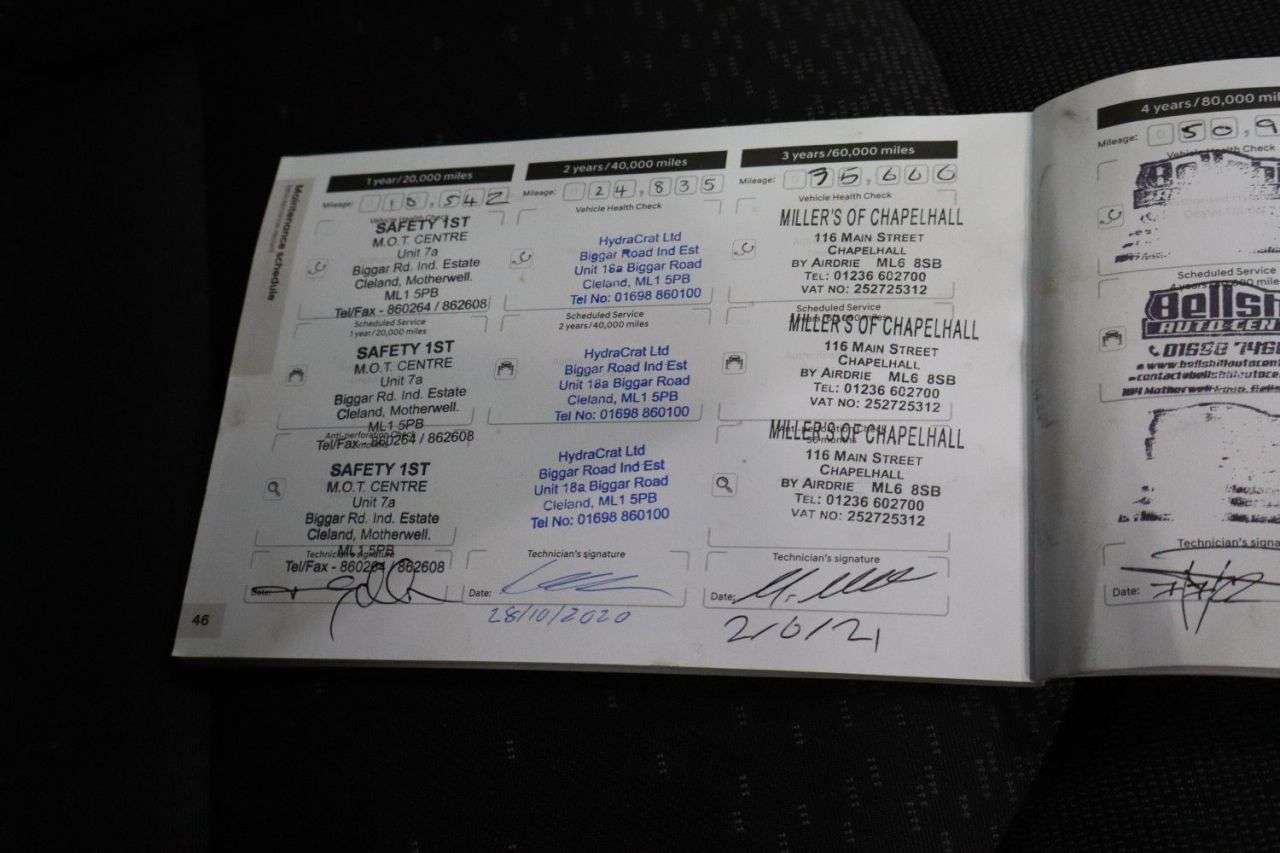 Maintenance schedule
1 year/20,000 miles
Mileage: 10,542
Vehicle Health Check
SAFETY 1ST
M.O.T. CENTRE
Unit 7a
Biggar Rd. Ind. Estate
Cleland, Motherwell.
ML1 5PB
Tel/Fax - 860264 / 862608
Scheduled Service
1 year/20,000 miles
SAFETY 1ST
M.O.T. CENTRE
Unit 7a
Biggar Rd. Ind. Estate
Cleland, Motherwell.
ML1 5PB
Tel/Fax - 860264 / 862608
SAFETY 1ST
M.O.T. CENTRE
Unit 7a
Biggar Rd. Ind. Estate
Cleland, Motherwell.
ML1 5PB
Technician's signature
Tel/Fax - 860264 / 862608
Date:
46
2 years/40,000 miles
Mileage: 024,835
Vehicle Health Check
HydraCrat Ltd
Biggar Road Ind Est
Unit 18a Biggar Road
Cleland, ML1 5PB
Tel No: 01698 860100
Scheduled Service
2 years/40,000 miles
HydraCrat Ltd
Biggar Road Ind Est
Unit 18a Biggar Road
Cleland, ML1 5PB
Tel No: 01698 860100
HydraCrat Ltd
Biggar Road Ind Est
Unit 18a Biggar Road
Cleland, ML1 5PB
Tel No: 01698 860100
Technician's signature
Date:
28/10/2020
3 years/60,000 miles
Mileage: 035,666
Vehicle Health Check
MILLER'S OF CHAPELHALL
116 MAIN STREET
CHAPELHALL
BY AIRDRIE ML6 8SB
TEL: 01236 602700
VAT NO: 252725312
Scheduled Service
MILLER'S OF CHAPELHALL
116 MAIN STREET
CHAPELHALL
BY AIRDRIE ML6 8SB
TEL: 01236 602700
VAT NO: 252725312
MILLER'S OF CHAPELHALL
116 MAIN STREET
CHAPELHALL
BY AIRDRIE ML6 8SB
TEL: 01236 602700
VAT NO: 252725312
Technician's signature
Date:
2/6/21
4 years/80,000 mil
Mileage: 050,9
Vehicle Health Check
Scheduled Service
Bellsh
AUTO CEN
01698 746
Technician's signa
Date: